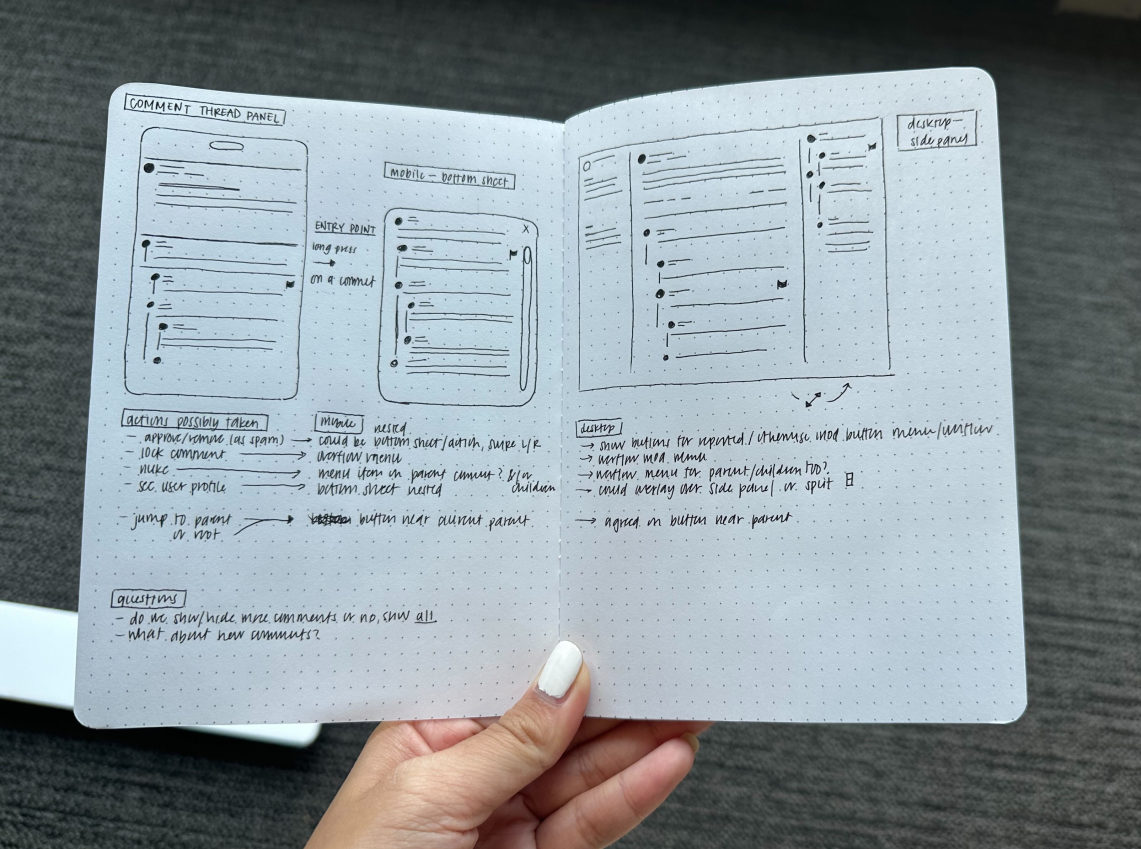 COMMENT THREAD PANEL
mobile - bottom sheet
ENTRY POINT
long press
on a comment
X
actions possibly taken
- approve/remove (as spam)
- lock comment
- nuke
- see user profile
- jump to parent
or root
mobile
nested
could be bottom sheet/action, swipe L/R
overflow menu
menu item in parent comment? &/or
children
bottom sheet nested
button near current parent
questions
- do we show/hide more comments or no, show all
- what about new comments?
desktop -
side panel
desktop
show buttons for reported/otherwise mod button menu/overflow
overflow mod menu
overflow menu for parent/children too?
could overlay over side panel or split
agreed on button near parent